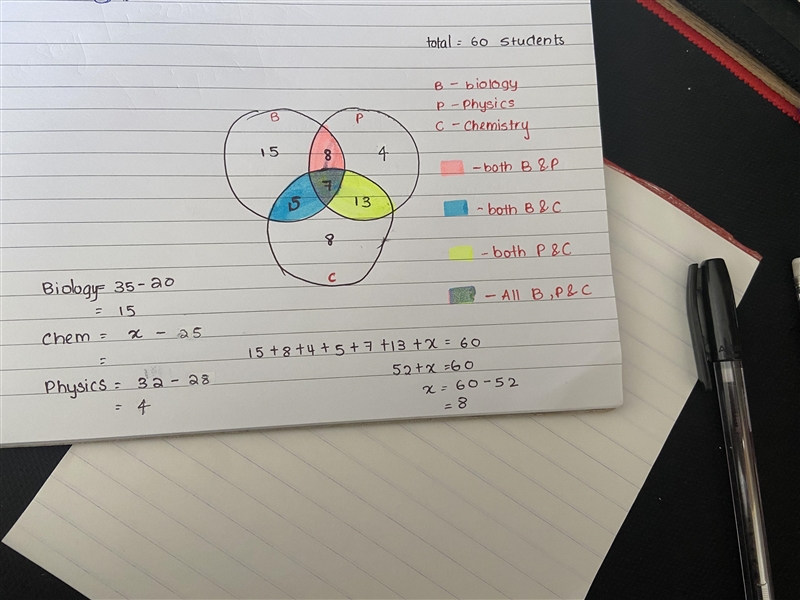 total = 60 students
B - biology
P - Physics
C - Chemistry
B P
15 8 4
7
5 13
8
C
- both B & P
- both B & C
- both P & C
- All B, P & C
Biology = 35 - 20
= 15
Chem = x - 25
=
Physics = 32 - 28
= 4
15 + 8 + 4 + 5 + 7 + 13 + x = 60
52 + x = 60
x = 60 - 52
= 8